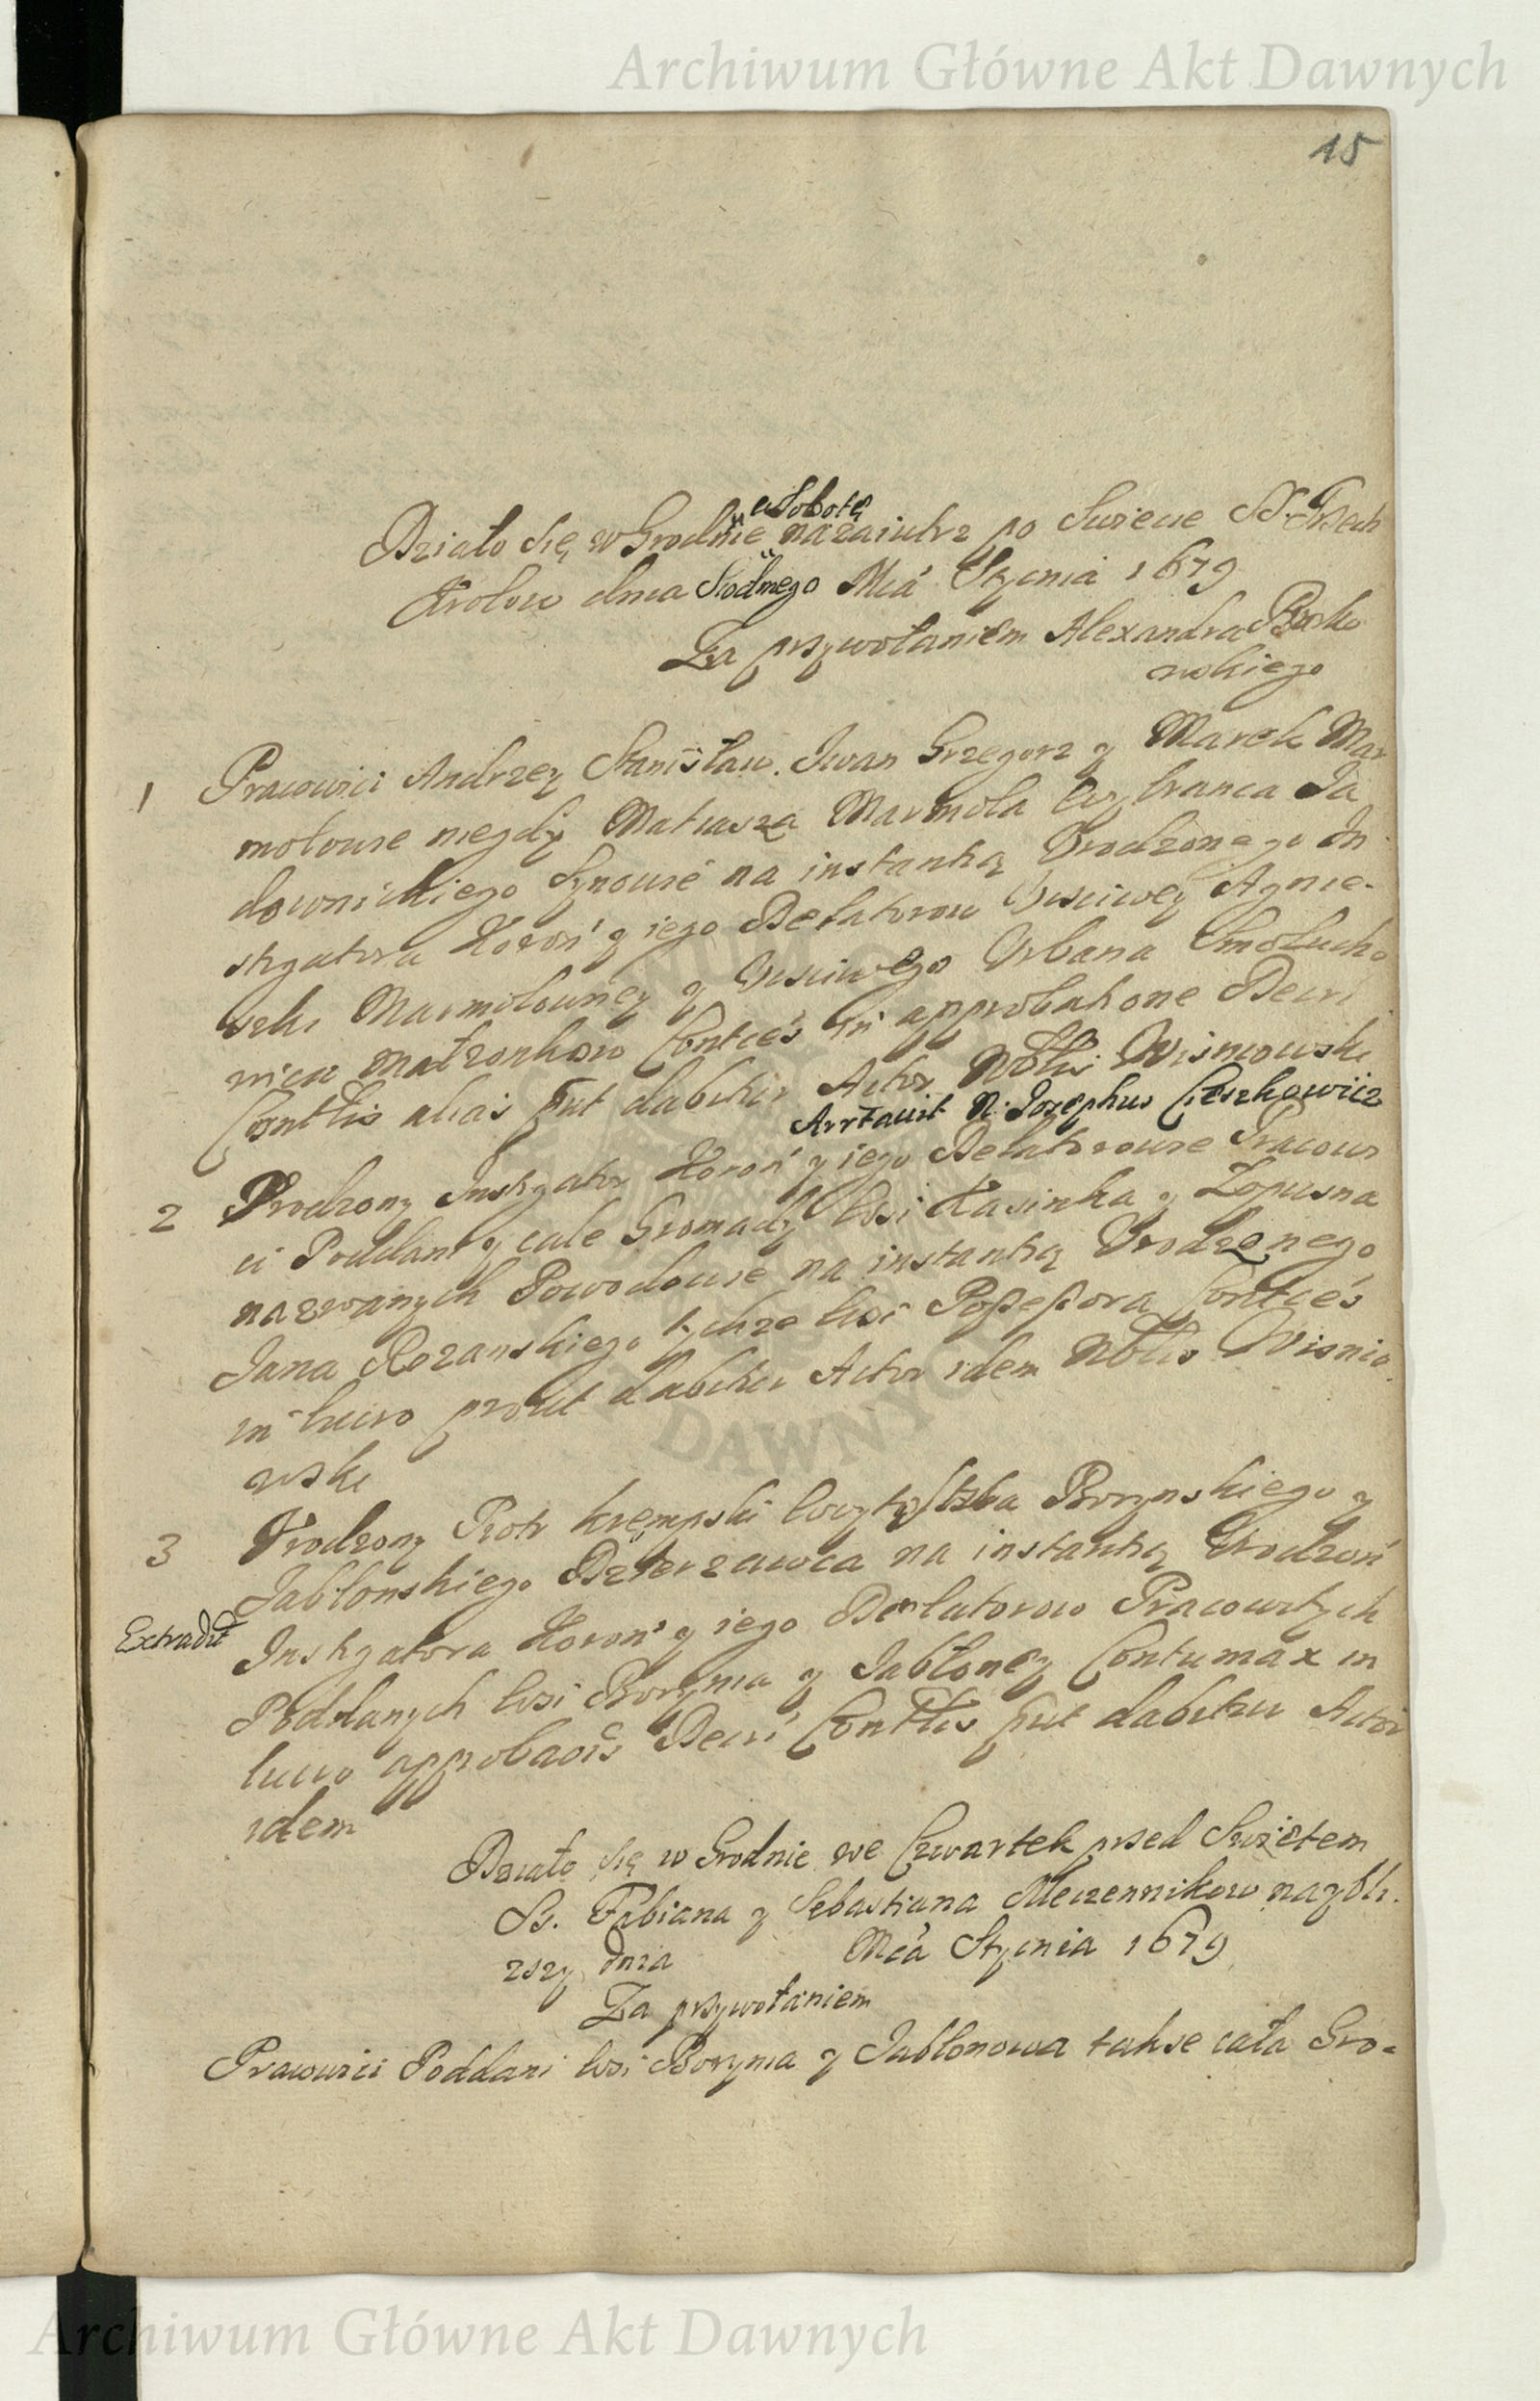 Archiwum Główne Akt Dawnych
15
w Sobotę
Działo się w Grodnie nazaiutrz po Swiecie SS Trzech
Krolow dnia Siodmego Mca Stycnia 1679
Za przywołaniem Alexandra
wskiego
1 Pracowici Andrzey Stanisław Iwan Grzegorz y Marek Mar
mołowie niegdy Matiasza Marmoła Wybranca Ja
downickiego Synowie na instantią Urodzonego In
stygatora Koron y iego Delatorow Ucsciwey Agnie-
szki Marmołowney y Ucsciwego Urbana Smołucho
wica Małzonkow Conttes in approbatione Decri
Conttis alias put dabitur Actor Nottis Wisniowski
Arrtauit N. Josephus Cieszkowiicz
2 Urodzony Instygator Koron y iego Delatorowie Pracowi
ci Poddani y cale Gromady Wsi Kasinka y Łopusna
nazwanych Powodowie na instantią Urodzonego
Jana Rozanskiego tychze Wsi Possessora Conttes
in lucro prout dabitur Actor idem Nottis Wisnio
wski
3 Urodzony Piotr Krempski Woytostwa Boryńskiego y
Jabłonskiego Dzierzawca na instantią Urodzon
Extradit
Instygatora Koron y iego Delatorow Pracowitych
Poddanych Wsi Borynia y Jabłoney Contumax in
lucro approbaōis Decri Conttis put dabitur Actor
idem
Działo się w Grodnie we Czwartek przed Swietem
SS. Fabiana y Sebastiana Mecennikow naybli.
zszy dnia Mca Stycnia 1679
Za przywołaniem
Pracowici Poddani Wsi Borynia y Jabłonowa takse cała Gro=
Archiwum Główne Akt Dawnych